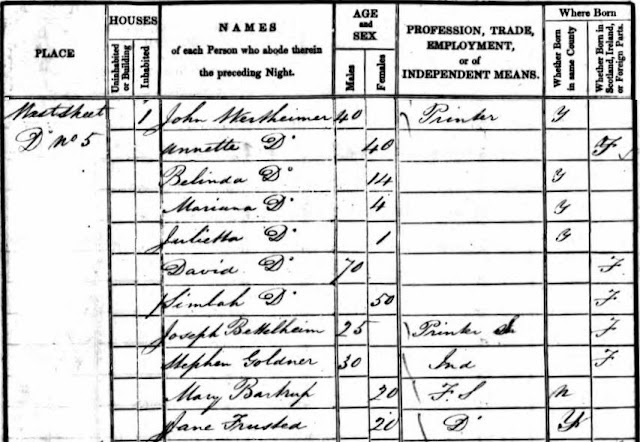 PLACE HOUSES Uninhabited or Building Inhabited NAMES of each Person who abode therein the preceding Night. AGE and SEX Males Females PROFESSION, TRADE, EMPLOYMENT, or of INDEPENDENT MEANS. Where Born Whether Born in same County Whether Born in Scotland, Ireland, or Foreign Parts.
1 John Wertheimer 40 Printer Y
Do no 5 Annette Do 40 F
Belinda Do 14 Y
Mariana Do 4 Y
Julietta Do 1 Y
David Do 70 F
Simbah Do 50 F
Joseph Bettelheim 25 Printer F
Stephen Goldner 30 Ind F
Mary Bartrup 20 F S N
Jane Frusted 20 Do Y